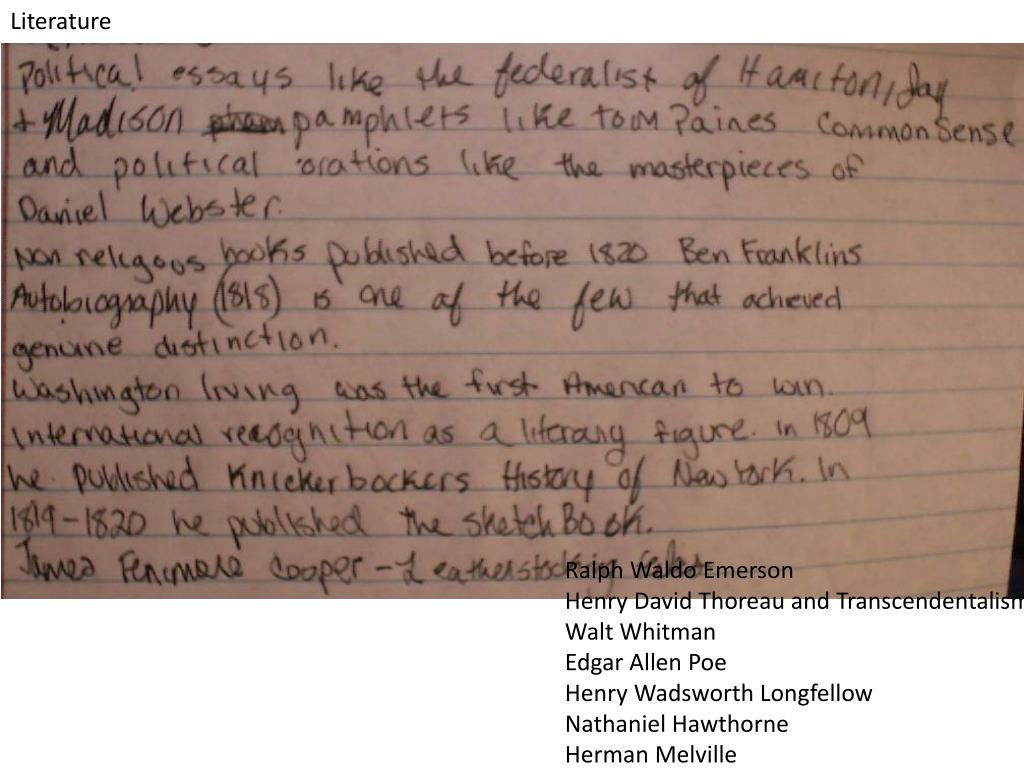 Literature
Political essays like the federalist of Hamilton, Jay
+ Madison pamphlets like tom Paines Common Sense
and political orations like the masterpieces of
Daniel Webster.
Non religous books published before 1820 Ben Franklins
Autobiography (1818) is one of the few that achieved
genuine distinction.
Washington Irving was the first American to win
international recognition as a literary figure. in 1809
he published Knickerbockers History of New York. In
1819-1820 he published the Sketch Book.
James Fenimore Cooper - Leatherstocking
Ralph Waldo Emerson
Henry David Thoreau and Transcendentalism
Walt Whitman
Edgar Allen Poe
Henry Wadsworth Longfellow
Nathaniel Hawthorne
Herman Melville